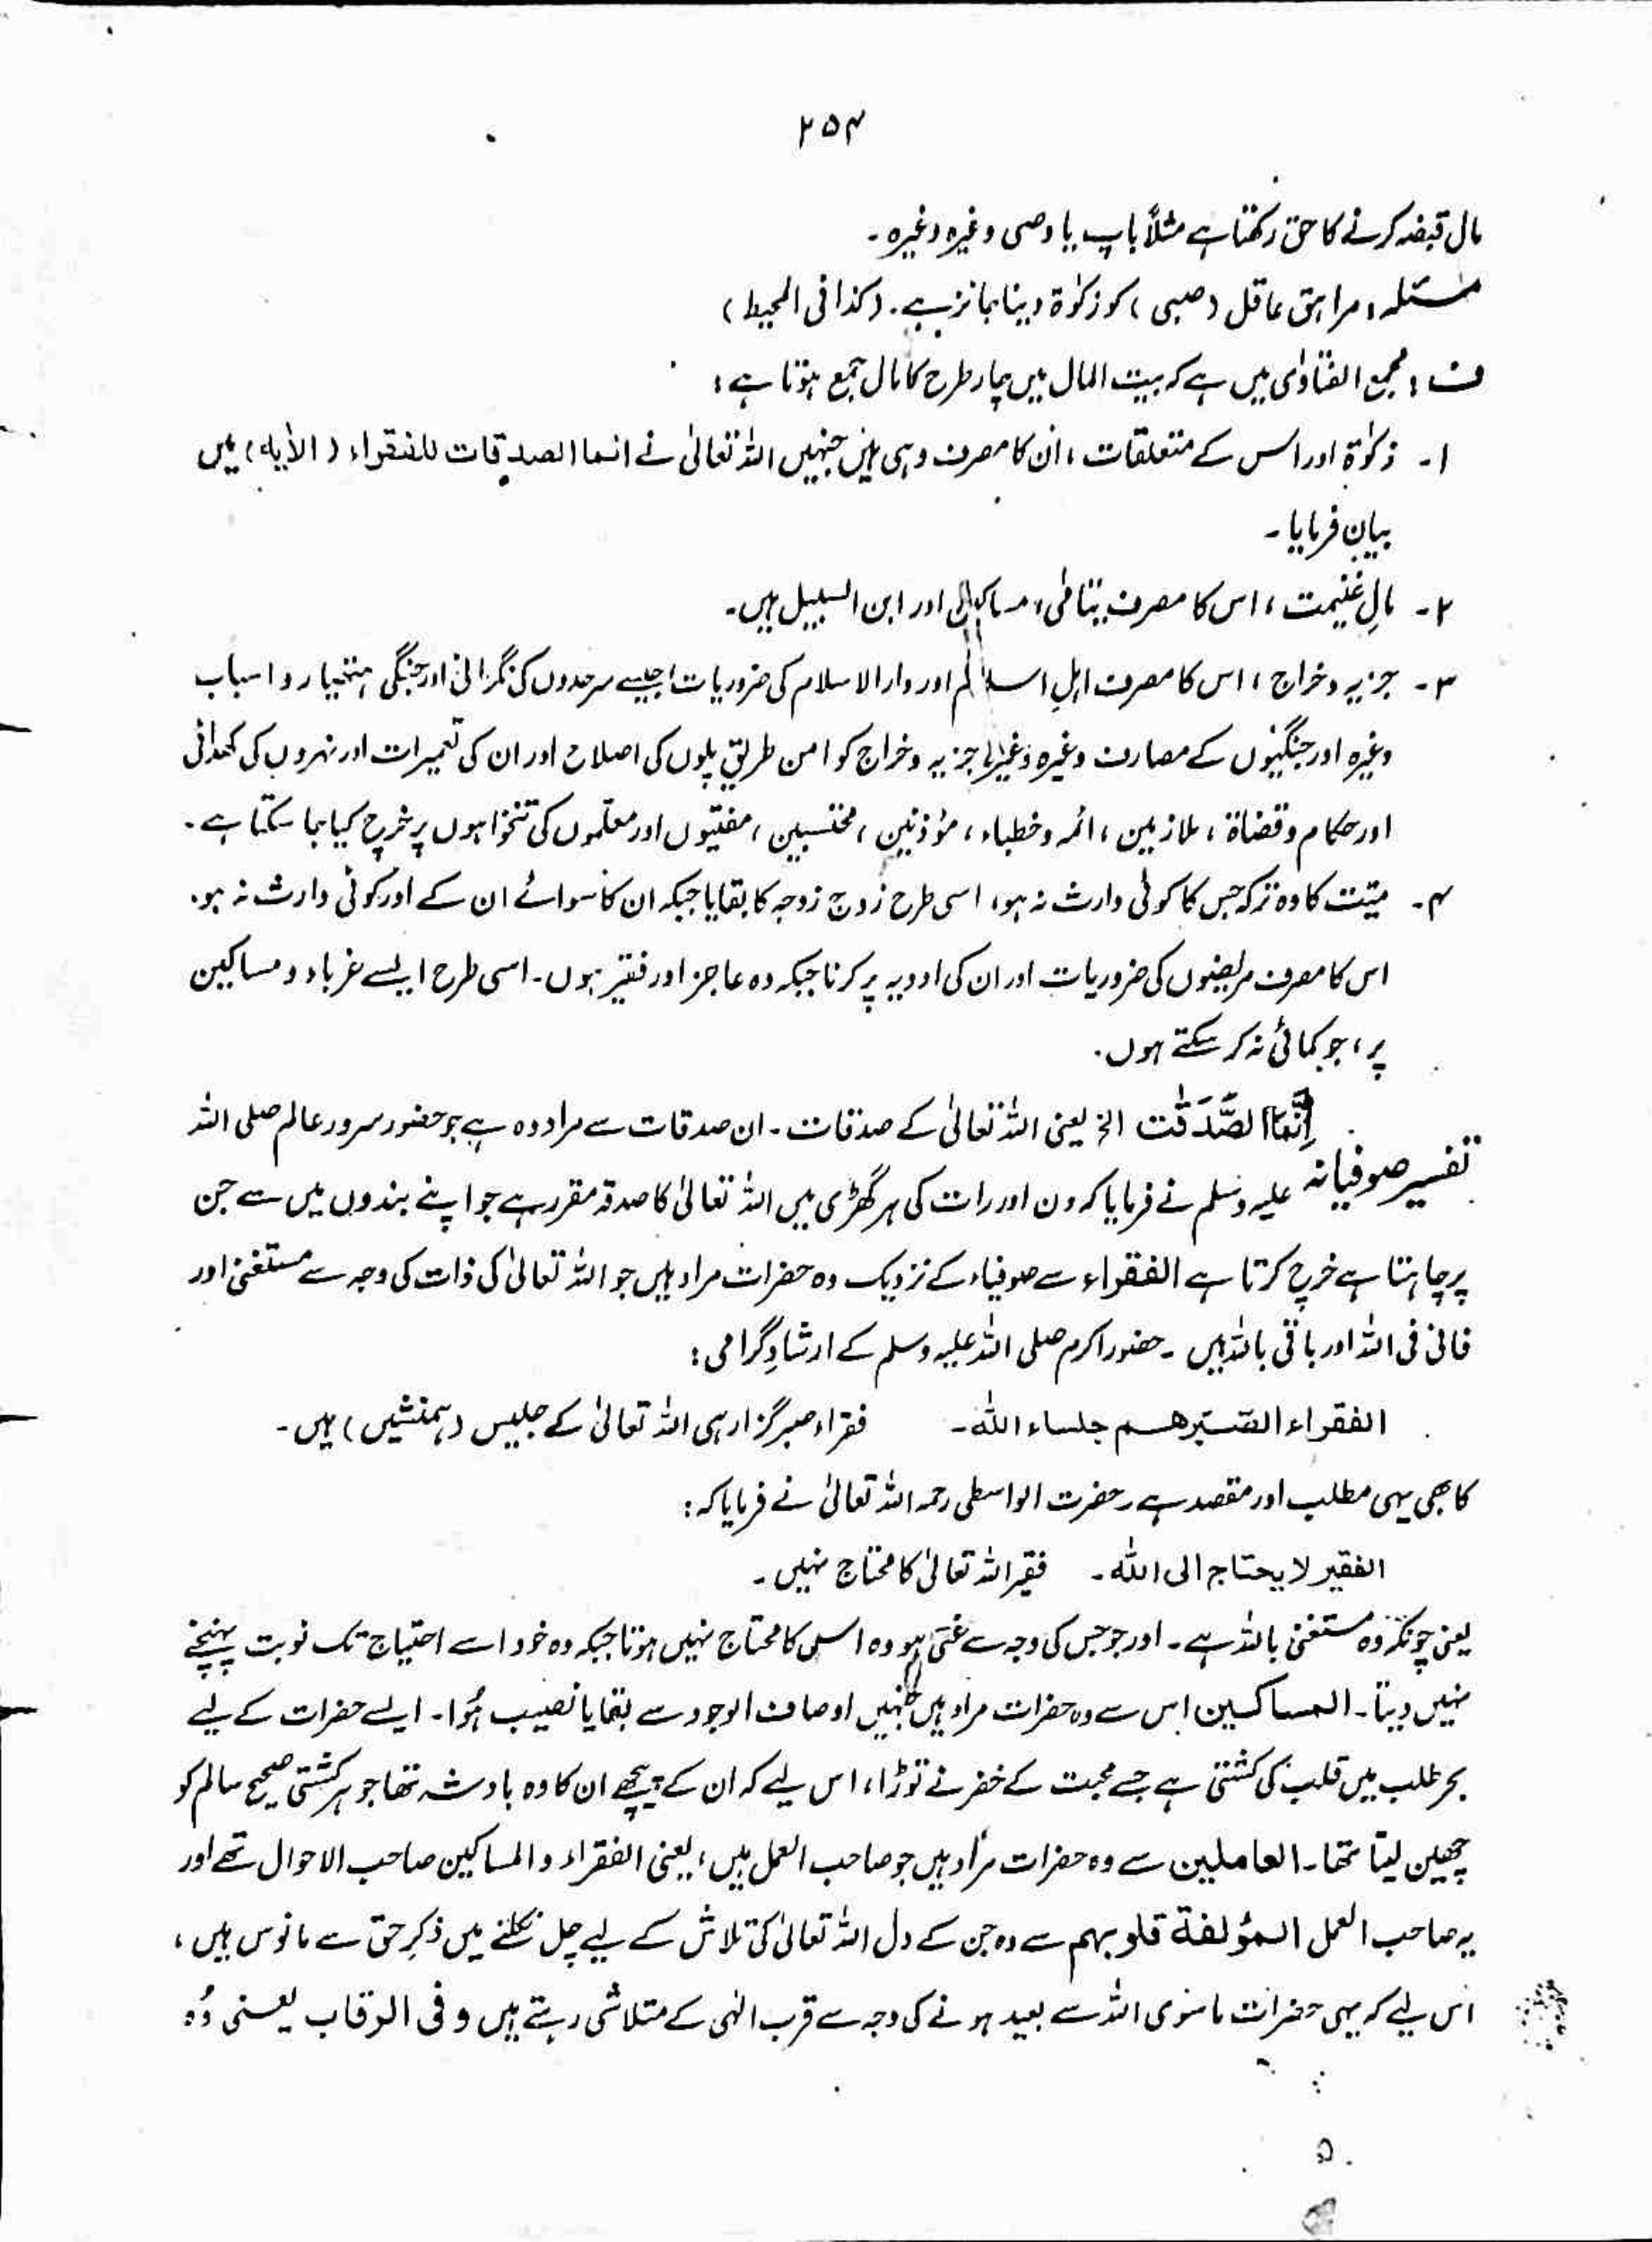 ۲۵۴
مال قبضہ کرنے کا حق رکھتا ہے مثلاً باپ یا وصی وغیرہ وغیرہ۔
مسئلہ: مراہق عاقل (صبی) کو زکوٰۃ دینا جائز ہے۔ (کذا فی المحیط)
ف: مجمع الفتاوٰی میں ہے کہ بیت المال میں چار طرح کا مال جمع ہوتا ہے:
۱۔ زکوٰۃ اور اس کے متعلقات، ان کا مصرف وہی ہیں جنہیں اللہ تعالیٰ نے انما الصدقات للفقراء (الآیہ) میں
بیان فرمایا۔
۲۔ مالِ غنیمت، اس کا مصرف یتامٰی، مساکین اور ابن السبیل ہیں۔
۳۔ جزیہ وخراج، اس کا مصرف اہلِ اسلام اور دارالاسلام کی ضروریات جیسے سرحدوں کی نگرانی اور جنگی ہتھیار و اسباب
وغیرہ اور جنگیوں کے مصارف وغیرہ وغیرہ جزیہ وخراج کو امن طریق پلوں کی اصلاح اور ان کی تعمیرات اور نہروں کی کھدائی
اور حکام وقضاۃ، ملازمین، ائمہ وخطباء، مؤذنین، محتسبین، مفتیوں اور معلّموں کی تنخواہوں پر خرچ کیا جا سکتا ہے۔
۴۔ میّت کا وہ ترکہ جس کا کوئی وارث نہ ہو، اسی طرح زوج زوجہ کا بقایا جبکہ ان کا سوائے ان کے اور کوئی وارث نہ ہو۔
اس کا مصرف مریضوں کی ضروریات اور ان کی ادویہ پر کرنا جبکہ وہ عاجز اور فقیر ہوں۔ اسی طرح ایسے غرباء و مساکین
پر، جو کمائی نہ کر سکتے ہوں۔
اِنَّمَا الصَّدَقٰت الخ یعنی اللہ تعالیٰ کے صدقات۔ ان صدقات سے مراد وہ ہے جو حضور سرور عالم صلی اللہ
تفسیر صوفیانہ علیہ وسلم نے فرمایا کہ دن اور رات کی ہر گھڑی میں اللہ تعالیٰ کا صدقہ مقرر ہے جو اپنے بندوں میں سے جن
پر چاہتا ہے خرچ کرتا ہے الفقراء سے صوفیاء کے نزدیک وہ حضرات مراد ہیں جو اللہ تعالیٰ کی ذات کی وجہ سے مستغنی اور
فانی فی اللہ اور باقی باللہ ہیں۔ حضور اکرم صلی اللہ علیہ وسلم کے ارشادِ گرامی:
الفقراء الصّبّر هم جلساء اللہ۔ فقراء صبر گزار ہی اللہ تعالیٰ کے جلیس (ہمنشیں) ہیں۔
کا بھی یہی مطلب اور مقصد ہے۔ حضرت الواسطی رحمہ اللہ تعالیٰ نے فرمایا کہ:
الفقیر لا یحتاج الی اللہ۔ فقیر اللہ تعالیٰ کا محتاج نہیں۔
یعنی چونکہ وہ مستغنی باللہ ہے۔ اور جو جس کی وجہ سے غنی ہو وہ اسی کا محتاج نہیں ہوتا جبکہ وہ خود اسے احتیاج تک نوبت پہنچنے
نہیں دیتا۔ المساکین اس سے وہ حضرات مراد ہیں جنہیں اوصاف الوجود سے بقایا نصیب ہُوا۔ ایسے حضرات کے لیے
بحر طلب میں قلب کی کشتی ہے جسے محبت کے خضر نے توڑا، اس لیے کہ ان کے پیچھے ان کا وہ بادشہ تھا جو ہر کشتی صحیح سالم کو
چھین لیتا تھا۔ العاملین سے وہ حضرات مراد ہیں جو صاحب العمل ہیں، یعنی الفقراء والمساکین صاحب الاحوال تھے اور
یہ صاحب العمل المؤلفة قلوبہم سے وہ جن کے دل اللہ تعالیٰ کی تلاش کے لیے چل نکلنے میں ذکرِ حق سے مانوس ہیں،
اس لیے کہ یہی حضرات ماسوی اللہ سے بعید ہونے کی وجہ سے قرب الٰہی کے متلاشی رہتے ہیں وفی الرقاب یعنی وُہ